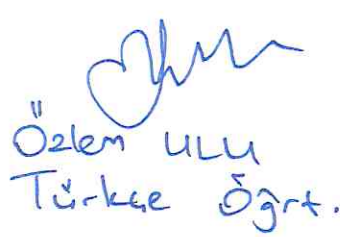 Özlem ULU
Türkçe Öğrt.